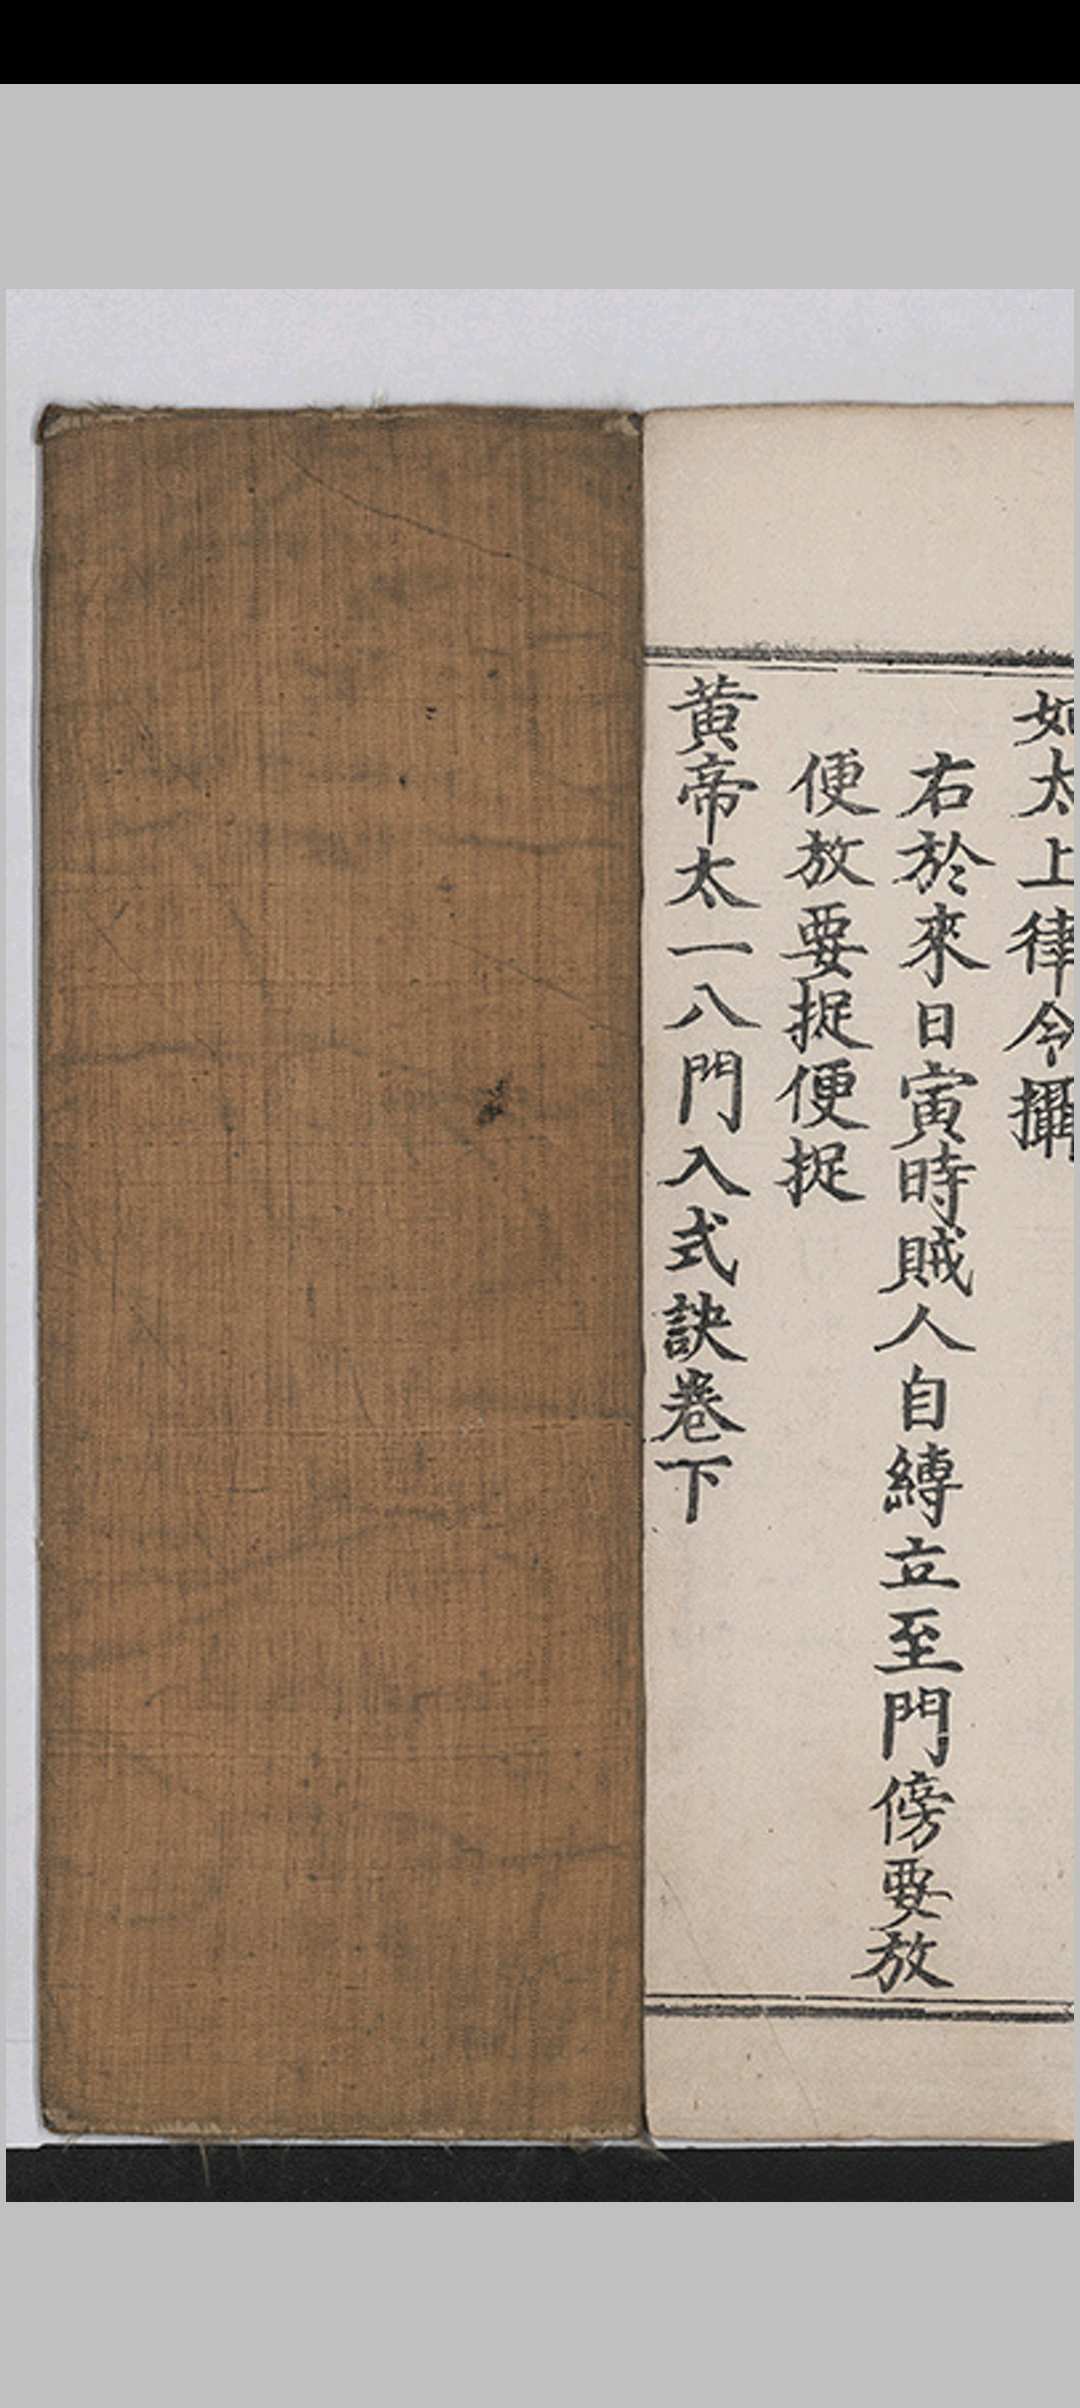 如太上律令攝
右於來日寅時賊人自縛立至門傍要放
便放要捉便捉
黃帝太一八門入式訣卷下